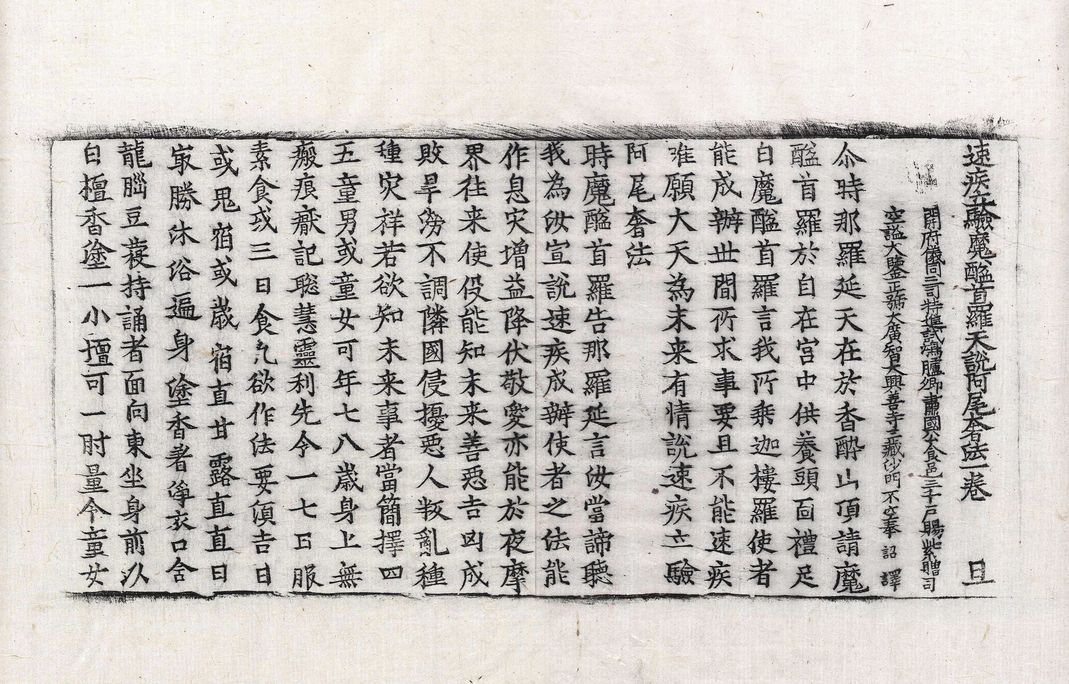 速疾立驗魔醯首羅天說阿尾奢法一卷 且
開府儀同三司特進試鴻臚卿肅國公食邑三千戶賜紫贈司
空謚大鑒正號大廣智大興善寺三藏沙門不空奉 詔 譯
尒時那羅延天在於香醉山頂請魔
醯首羅於自在宮中供養頭面禮足
白魔醯首羅言我所乘迦樓羅使者
能成辦世間所求事要且不能速疾
唯願大天為未來有情說速疾立驗
阿尾奢法
時魔醯首羅告那羅延言汝當諦聽
我為汝宣說速疾成辦使者之法能
作息灾增益降伏敬愛亦能於夜摩
界往来使役能知未来善惡吉凶成
敗旱澇不調隣國侵擾惡人叛亂種
種灾祥若欲知未来事者當簡擇四
五童男或童女可年七八歲身上無
瘢痕黶記聡慧靈利先令一七日服
素食或三日食凢欲作法要須吉日
或鬼宿或歲宿直甘露直直日
㝡勝沐浴遍身塗香著淨衣口含
龍腦豆蔲持誦者面向東坐身前以
白檀香塗一小壇可一肘量令童女